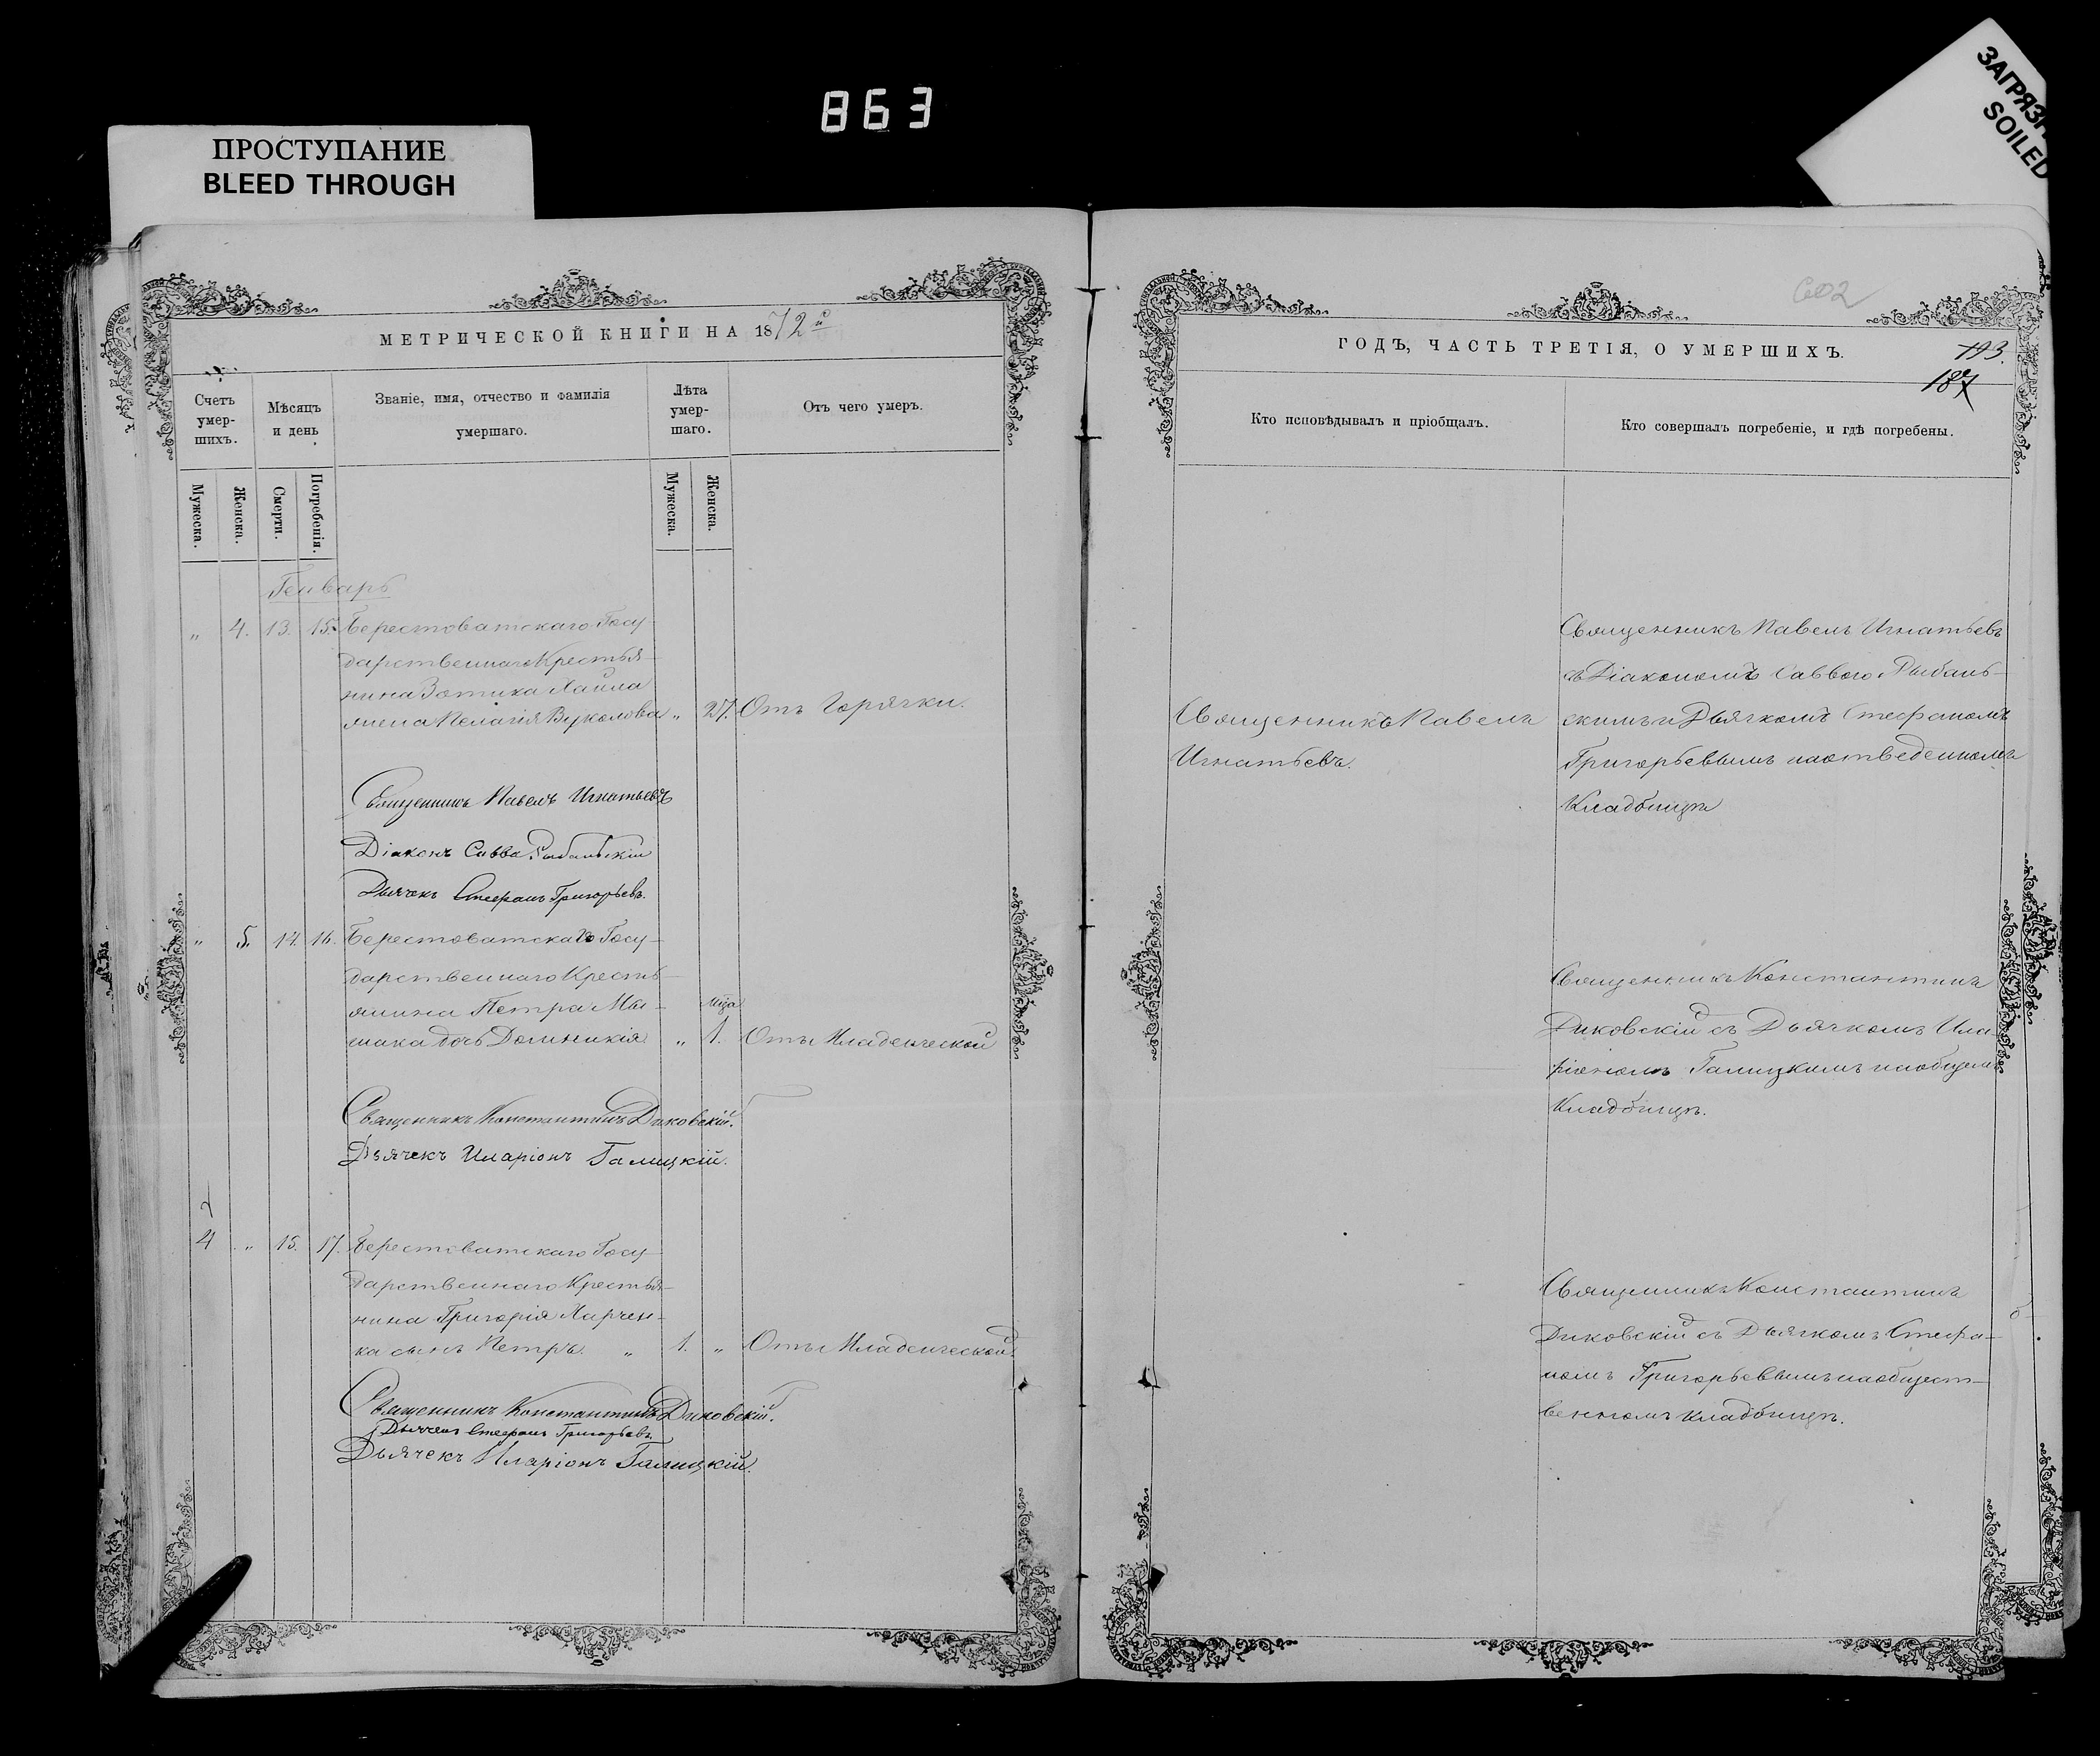 863
ПРОСТУПАНИЕ
BLEED THROUGH
ЗАГРЯЗН
SOILED
602
МЕТРИЧЕСКОЙ КНИГИ НА 1872й
Счетъ умершихъ.
Мужеска.
Женска.
Мѣсяцъ и день
Смерти.
Погребенія.
Званіе, имя, отчество и фамилія
умершаго.
Лѣта умершаго.
Мужеска.
Женска.
Отъ чего умеръ.
Генварь
„ 4. 13. 15. Берестоватскаго Госу-
дарственнаго Крестья-
нина Зотика
жена Пелагія Вуколова „ 27. Отъ Горячки.
Священникъ Павелъ Игнатьевъ
Діаконъ Савва
Дьячекъ Стефанъ Григорьевъ.
„ 5. 14. 16. Берестоватскаго Госу-
дарственнаго Кресть-
янина Петра Мы-
шака дочь Домникія „ мца 1. Отъ Младенческой
Священникъ Константинъ Диковскій.
Дьячекъ Иларіонъ Галицкій.
2
4 „ 15. 17. Берестоватскаго Госу-
дарственнаго Крестья-
нина Григорія Харчен-
ка сынъ Петръ. „ 1. „ Отъ Младенческой.
Священникъ Константинъ Диковскій.
Дьячекъ Стефанъ Григорьевъ.
Дьячекъ Иларіонъ Галицкій.
ГОДЪ, ЧАСТЬ ТРЕТІЯ, О УМЕРШИХЪ.
193.
187
Кто исповѣдывалъ и пріобщалъ.
Кто совершалъ погребеніе, и гдѣ погребены.
Священникъ Павелъ
Игнатьевъ.
Священникъ Павелъ Игнатьевъ
съ Діакономъ Саввою
скимъ и Дьячкомъ Стефаномъ
Григорьевымъ на отведенномъ
Кладбищѣ
Священникъ Константинъ
Диковскій съ Дьячкомъ Ила-
ріономъ Галицкимъ на общем
Кладбищѣ.
Священникъ Константинъ
Диковскій съ Дьячкомъ Стефа-
номъ Григорьевымъ на общест-
венномъ кладбищѣ.